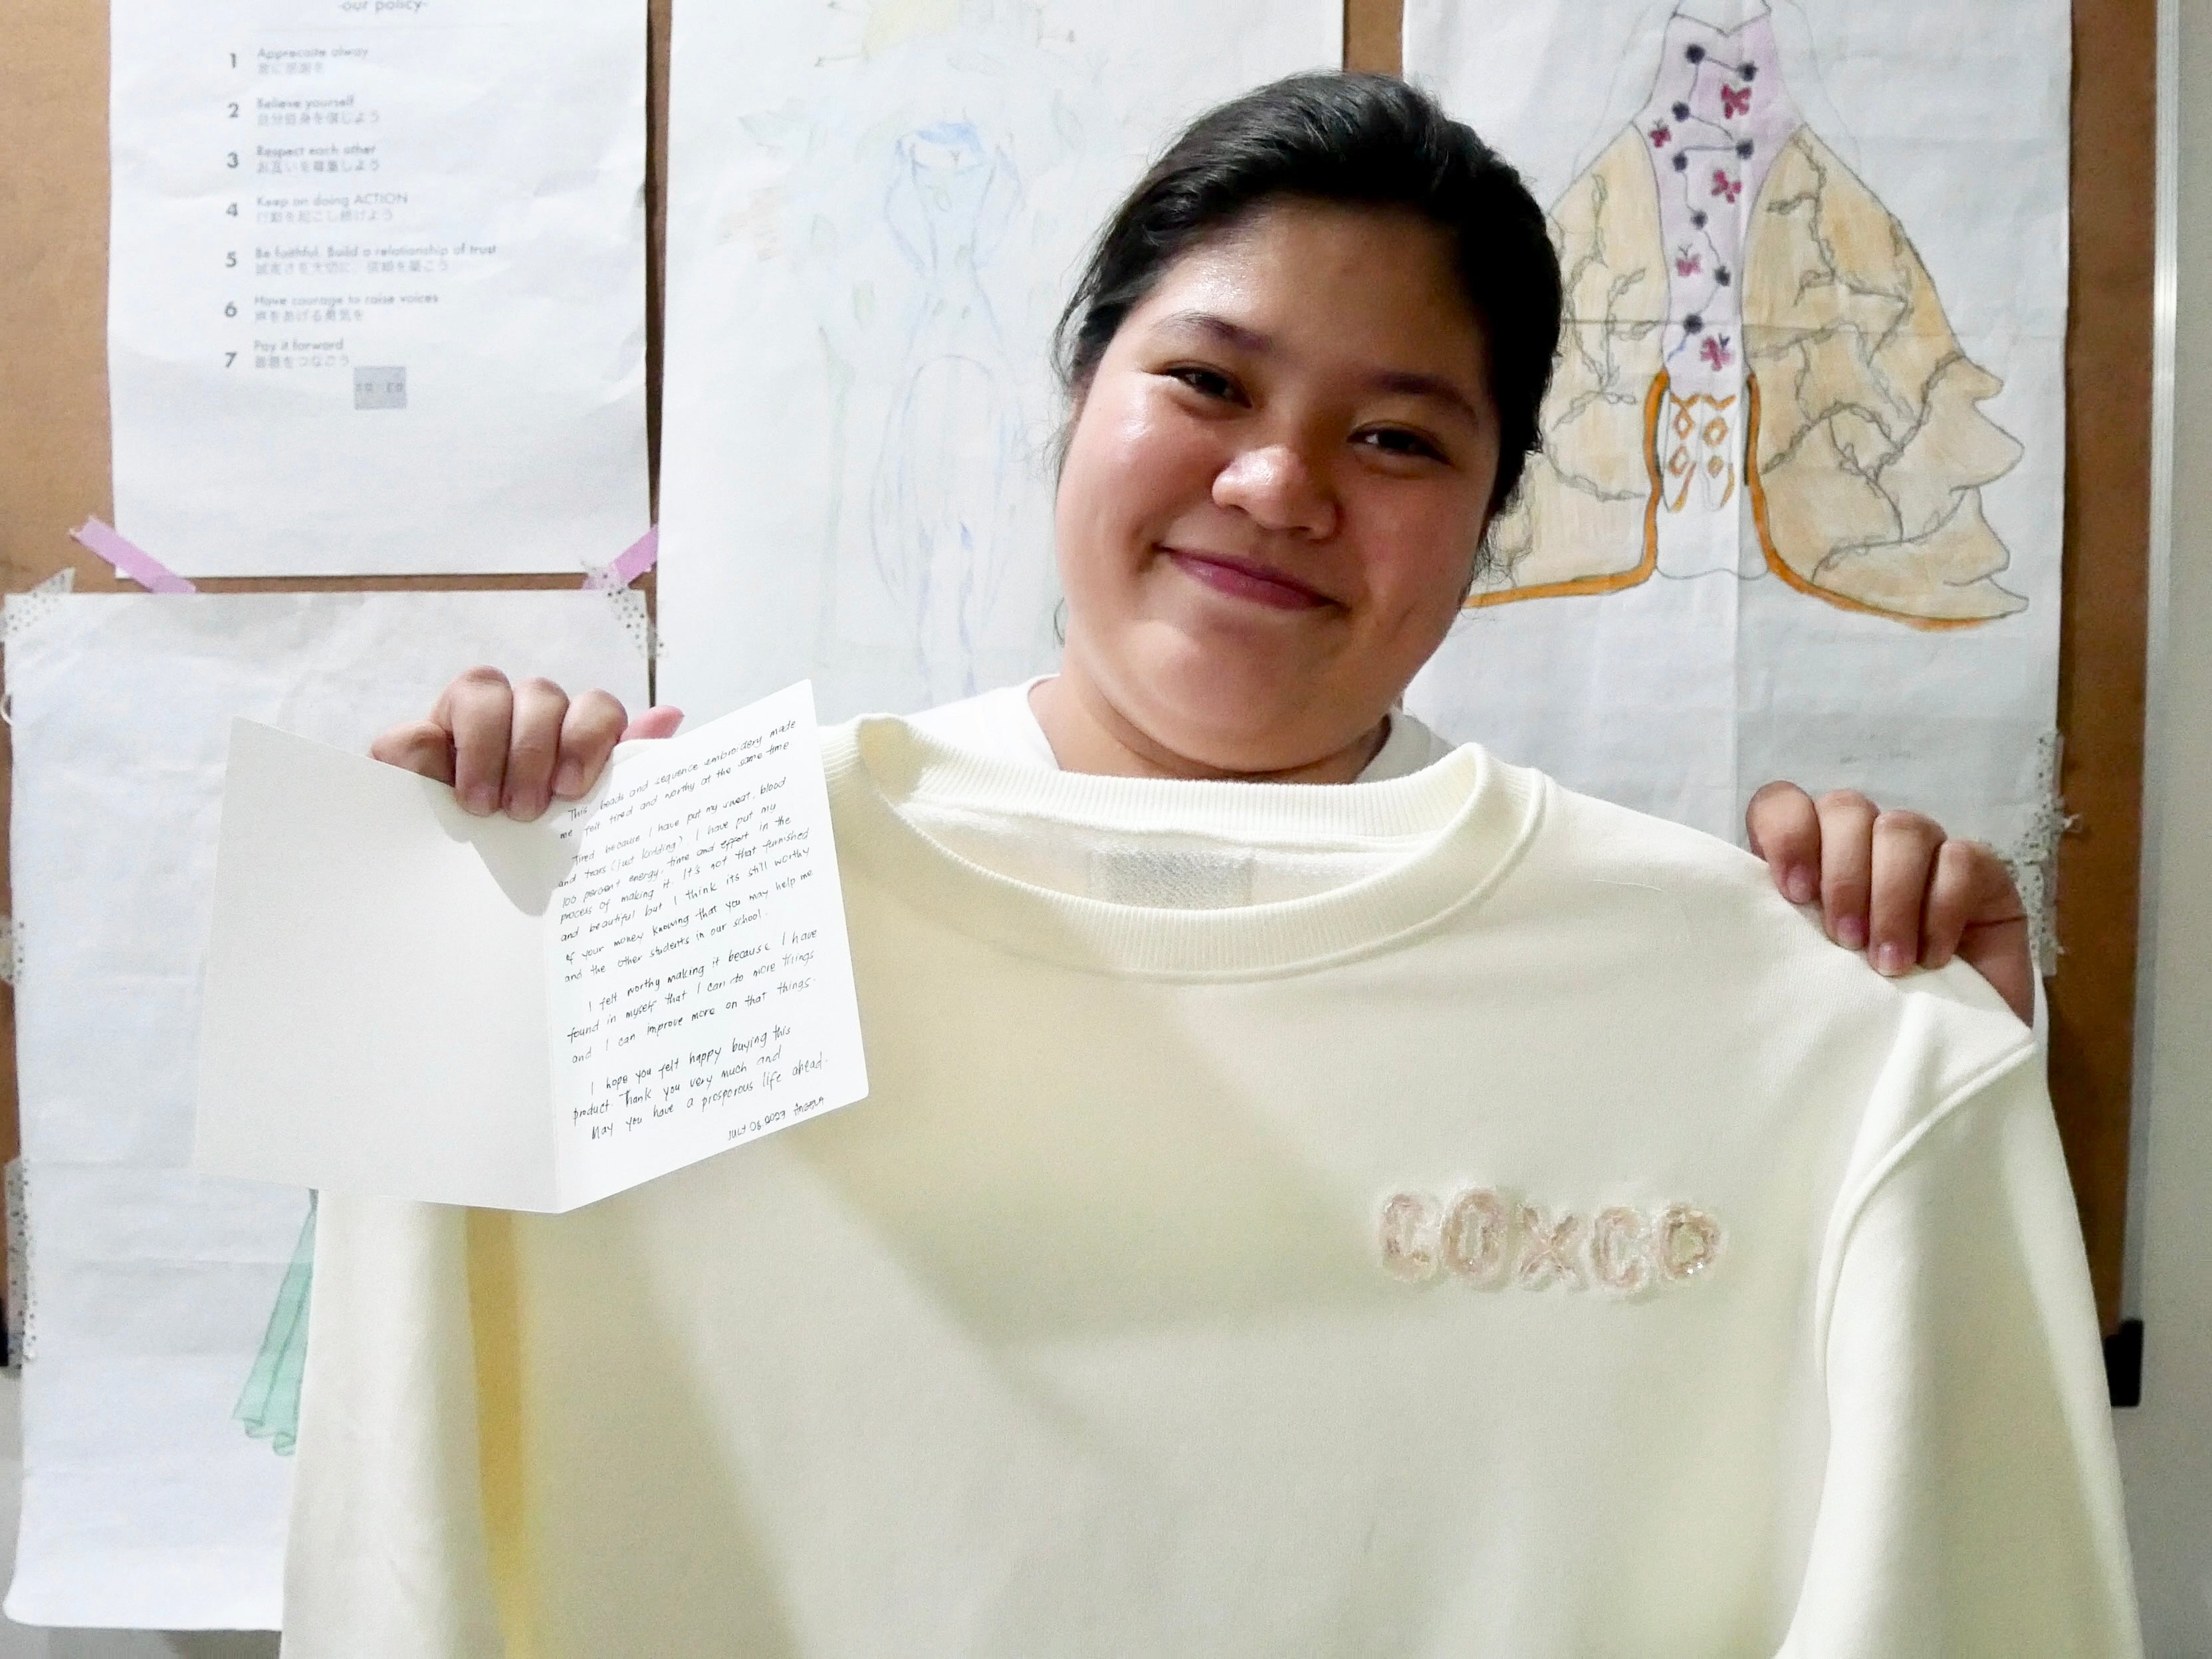 -our policy-
1 Appreciate alway
常に感謝を
2 Believe yourself
自分自身を信じよう
3 Respect each other
お互いを尊重しよう
4 Keep on doing ACTION
行動を起こし続けよう
5 Be faithful. Build a relationship of trust
誠実さを大切に、信頼を築こう
6 Have courage to raise voices
声をあげる勇気を
7 Pay it forward
恩恵をつなごう
This beads and sequence embroidery made
me felt tired and worthy at the same time
Tired because I have put my sweat, blood
and tears (just kidding) I have put my
100 percent energy, time and effort in the
process of making it. It's not that furnished
and beautiful but I think its still worthy
of your money knowing that you may help me
and the other students in our school.
I felt worthy making it because I have
found in myself that I can do more things
and I can improve more on that things.
I hope you felt happy buying this
product. Thank you very much and
May you have a prosporous life ahead.
JULY 06, 2023
LOXCO